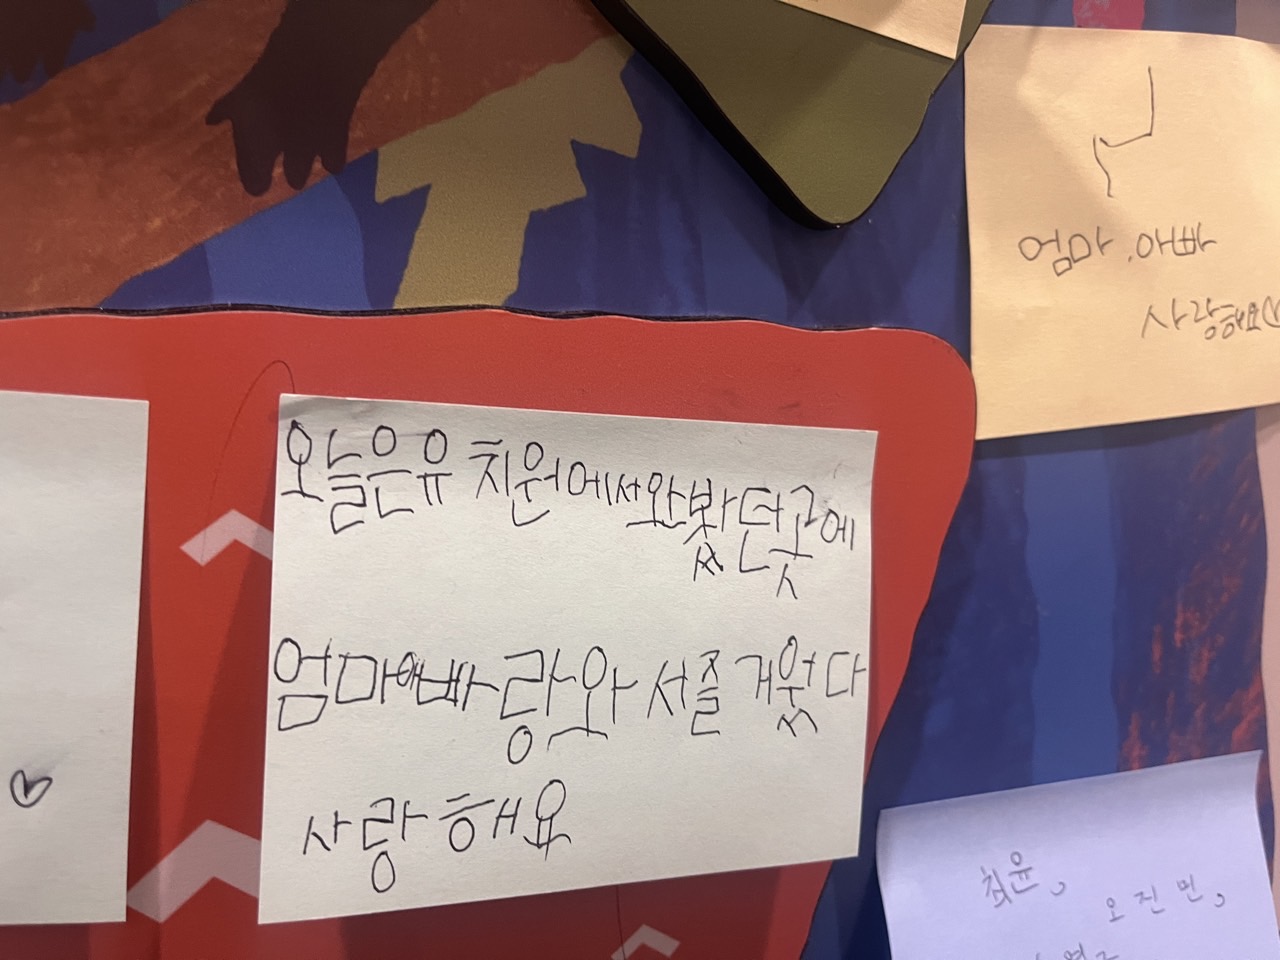 엄마, 아빠
사랑해요♡
오늘은유치원에서와봤던곳에
엄마아빠랑와서즐거웠다
사랑해요
♡
최윤,
오진민,